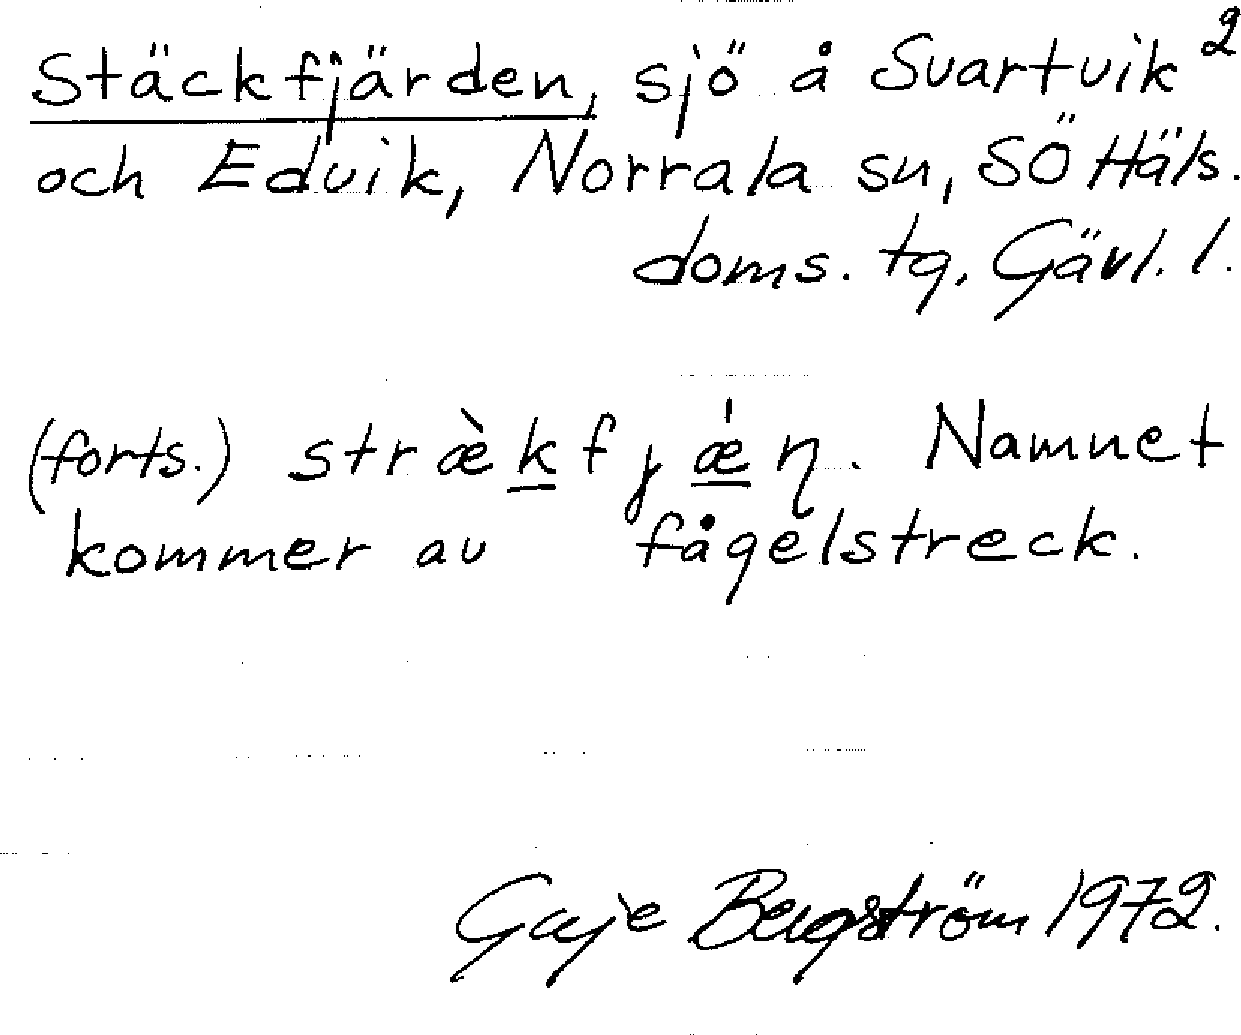 Stäckfjärden, sjö å Svartvik 2
och Edvik, Norrala sn, SÖ Häls.
doms. tg, Gävl. l.
(forts.) stræ̀kfjǽɳ. Namnet
kommer av fågelstreck.
Bergström 1972.